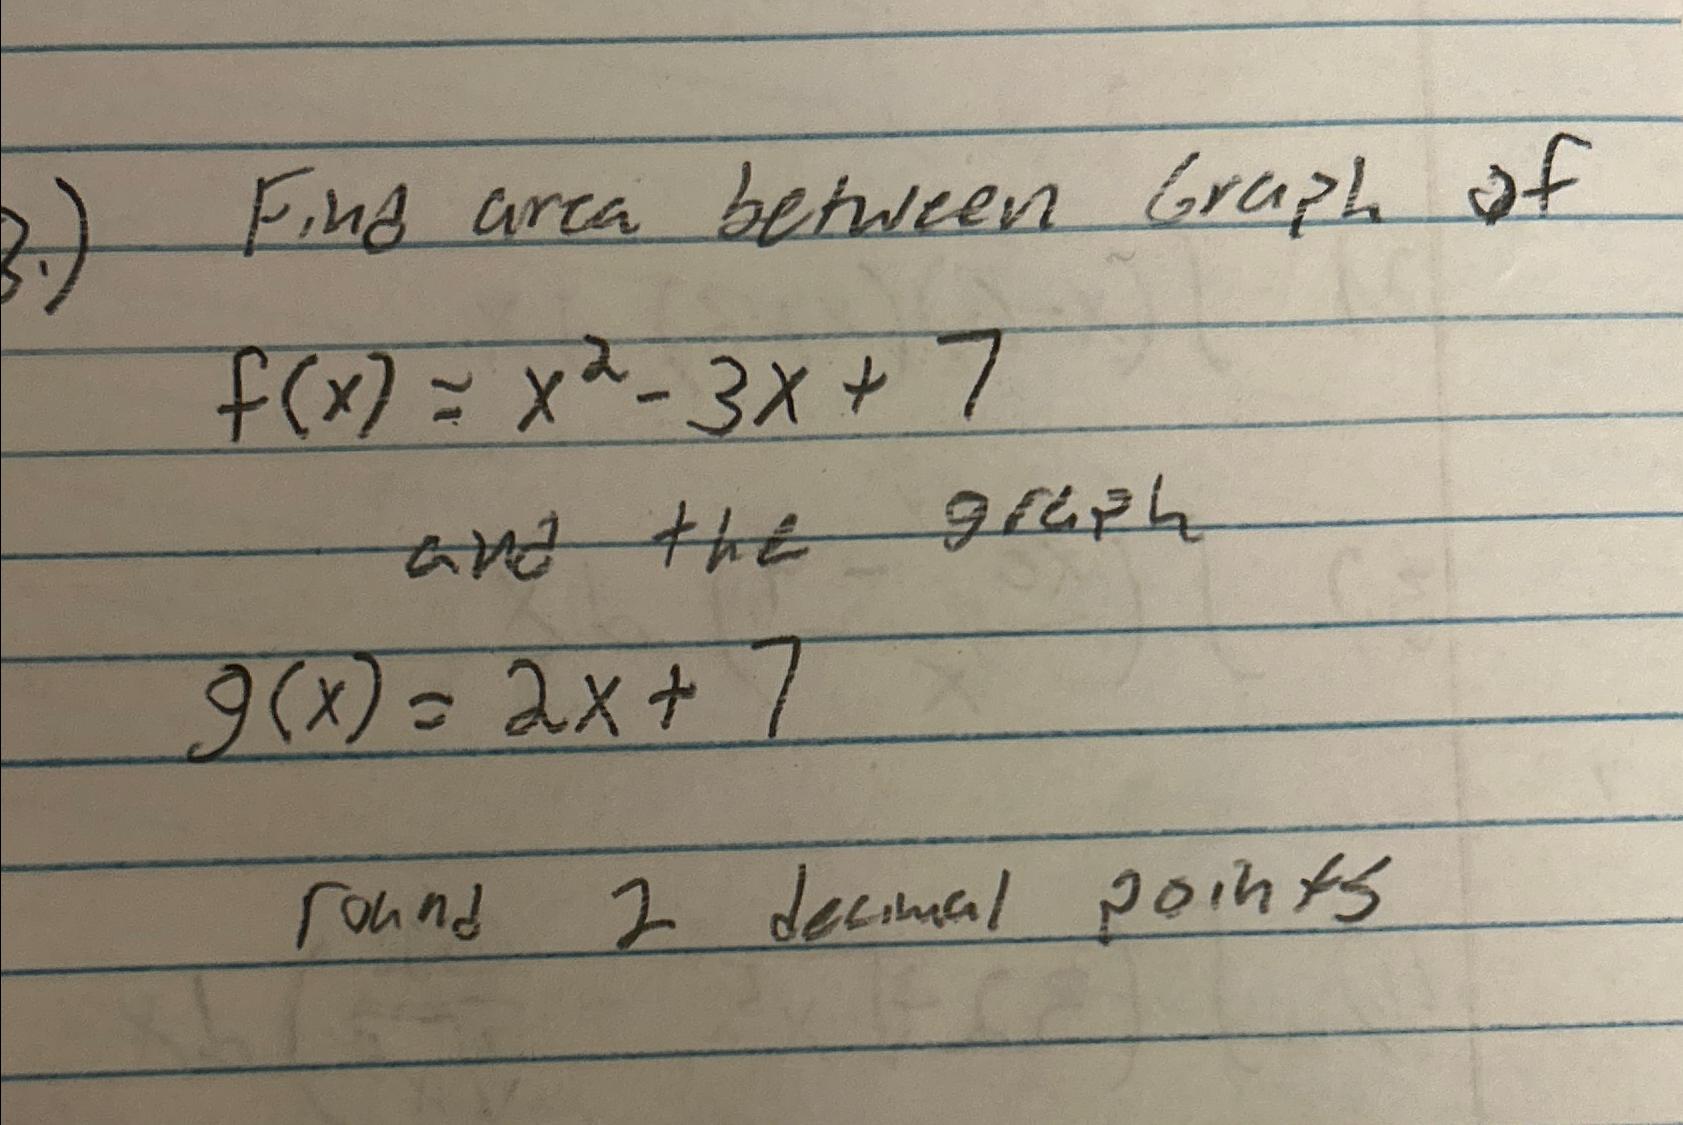 3.) Find area between Graph of
f(x) = x² - 3x + 7
and the graph
g(x) = 2x + 7
round 2 decimal points